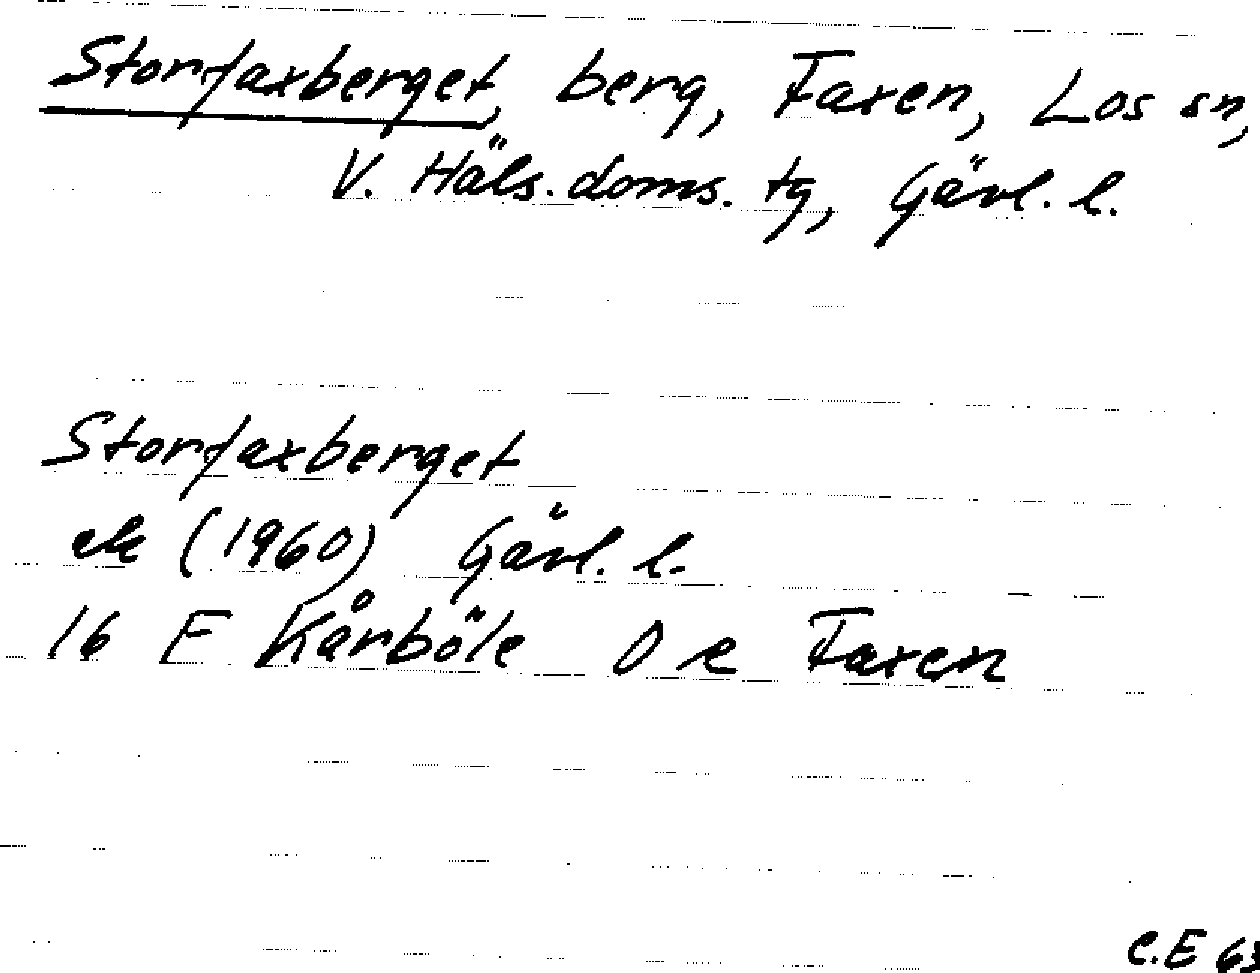 Storfaxberget, berg, Faxen, Los sn,
V. Häls. doms. tg, Gävl. l.
Storfaxberget
ek (1960) Gävl. l.
16 E Kårböle O e Faxen
C.E